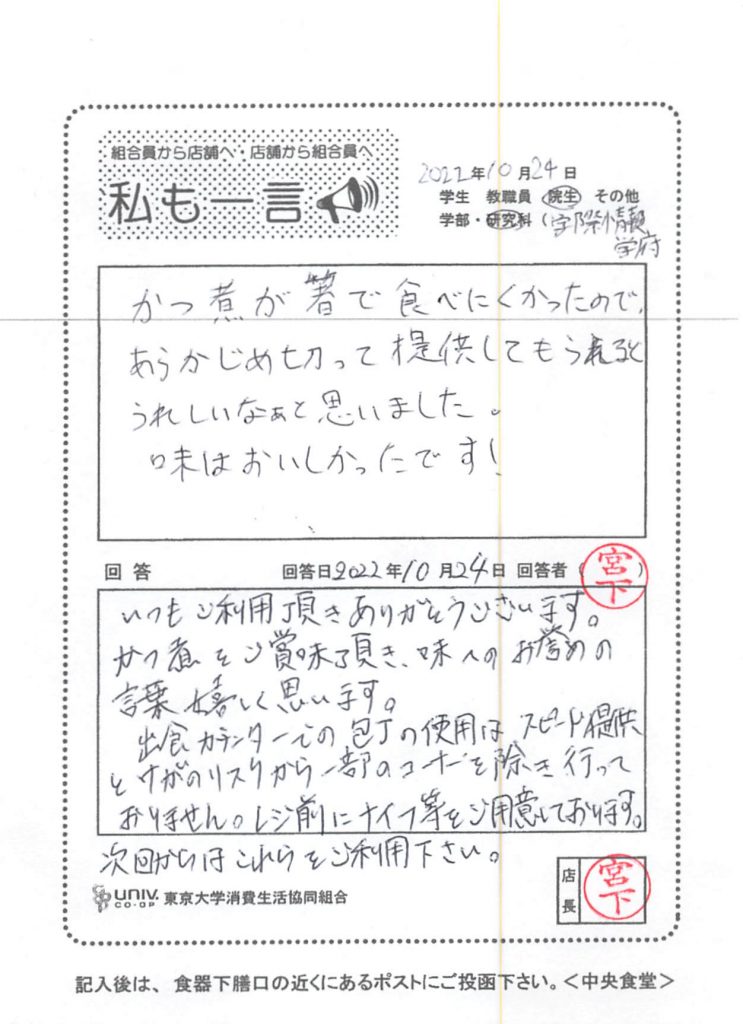 組合員から店舗へ・店舗から組合員へ
私も一言
2022年10月24日
学生 教職員 院生 その他
学部・研究科(学際情報
学府
かつ煮が箸で食べにくかったので、
あらかじめ切って提供してもらえると
うれしいなぁと思いました。
味はおいしかったです!
回答 回答日2022年10月24日 回答者(宮下)
いつもご利用頂きありがとうございます。
かつ煮をご賞味頂き、味へのお誉めの
言葉嬉しく思います。
出食カウンターでの包丁の使用は、スピード提供
とケガのリスクから一部のコーナーを除き行って
おりません。レジ前にナイフ等をご用意しております。
次回からはこれらをご利用下さい。
UNIV. CO-OP 東京大学消費生活協同組合
店長 宮下
記入後は、食器下膳口の近くにあるポストにご投函下さい。<中央食堂>